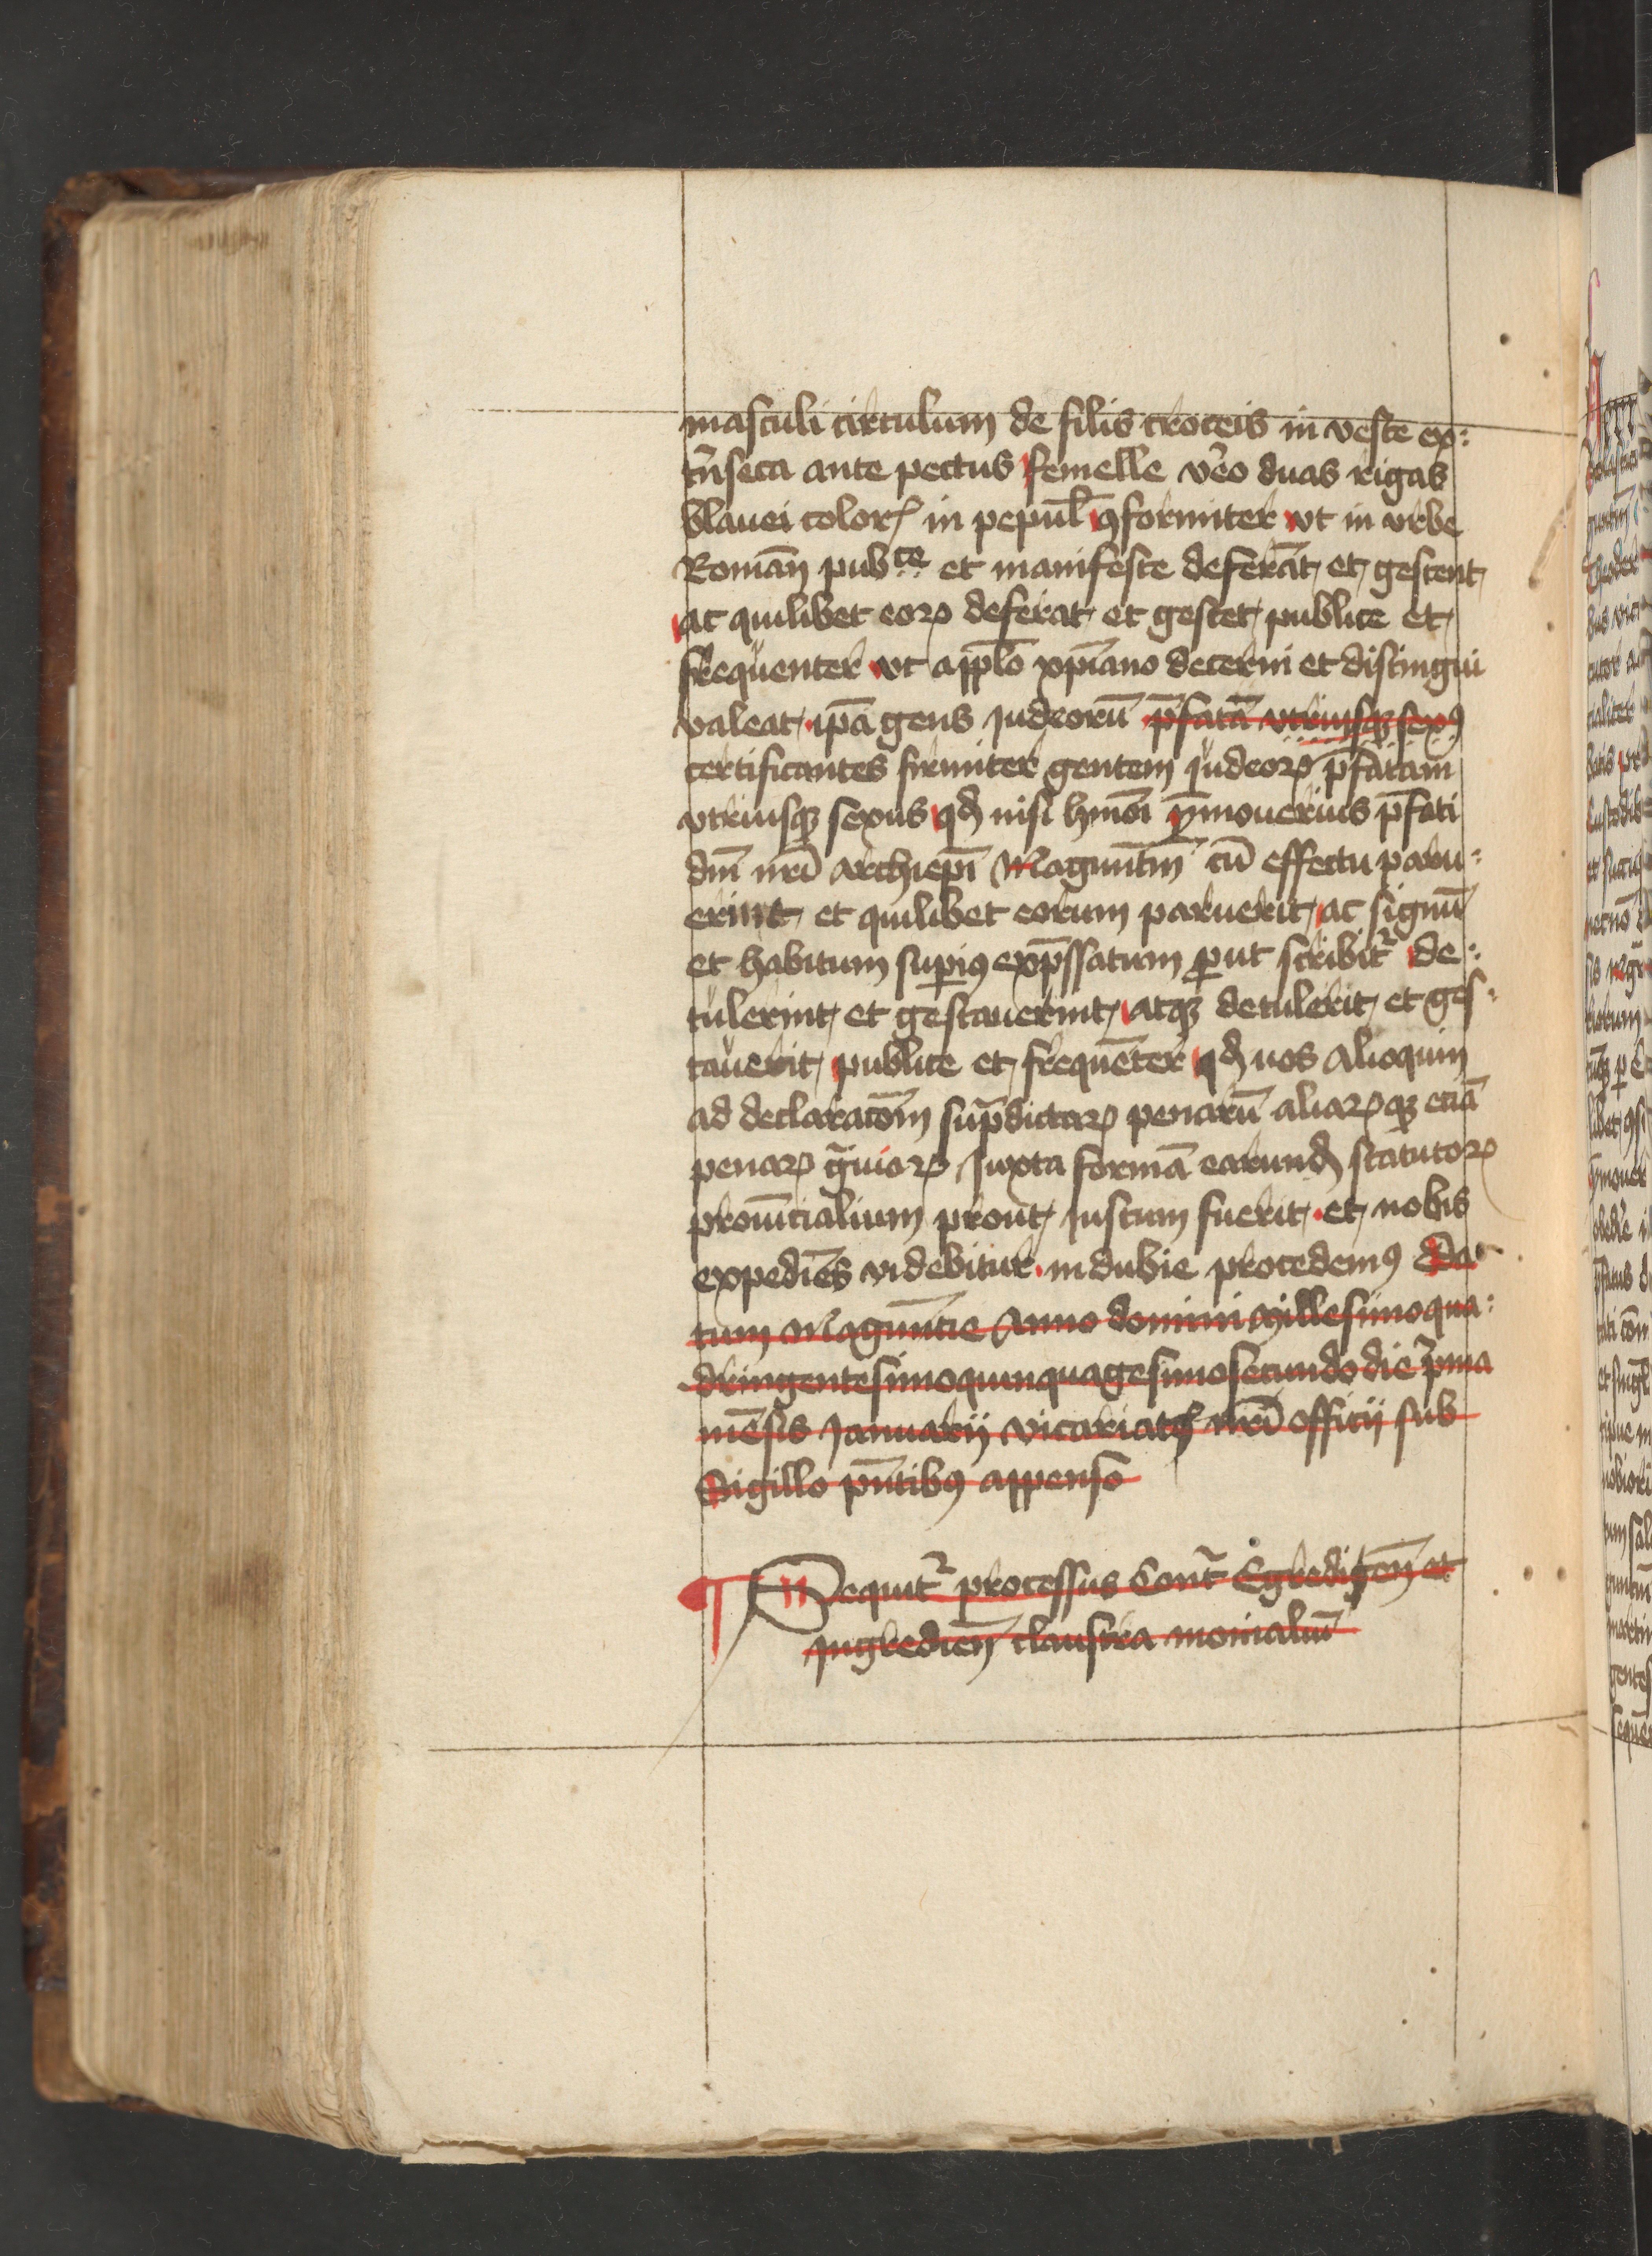 masculi circulum de filis croceis in veste ex:
tͬnseca ante pectus femelle v̾o duas rigas
blauei colorꝭ in pepul̄ ꝯformiter vt in vrbe
Roman̄ pubᶜᵉ et manifeste deferāt et gestent
ac quilibet eoꝝ deferat et gestet publice et
frequenter vt appl̄o xp̄iano decerni et distingui
valeat ip̄a gens iudeorū p̄fatā vtriusqꝫ sexꝰ
certificantes firmiter gentem judeoꝝ p̄fatam
vtriusqꝫ sexus qd̄ nisi hmōi p̄mouerius p̄fati
dn̄i nr̄i archiepī Magunt̄in cū effectu paru:
erint et quilibet eorum paruerit ac signū
et habitum supiꝰ exp̄ssatum ꝓut scribit᷑ de:
tulerint et gestauerint atqꝫ detulerit et ges:
tauerit publice et frequēter qd̄ nos alioquin
ad declaracōm sup̄dictaꝝ penarū aliaꝝqꝫ eciā
penaꝝ g̃uioꝝ Juxta formā earund̄ statutoꝝ
prouīncialium prout justum fuerit et nobis
expediēs videbitur indubie procedemꝰ Da:
tum Magūncie Anno domini Millesimoqua:
dringentesimoquinquagesimosecundo die p̄ma
mēsis Januarij vicariatꝰ nr̄i officij sub
Sigillo pn̄tibꝰ appenso
Sequit᷑ processus Cont᷑ Egredigen̄ et
Jngredien̄ claustra monialiū